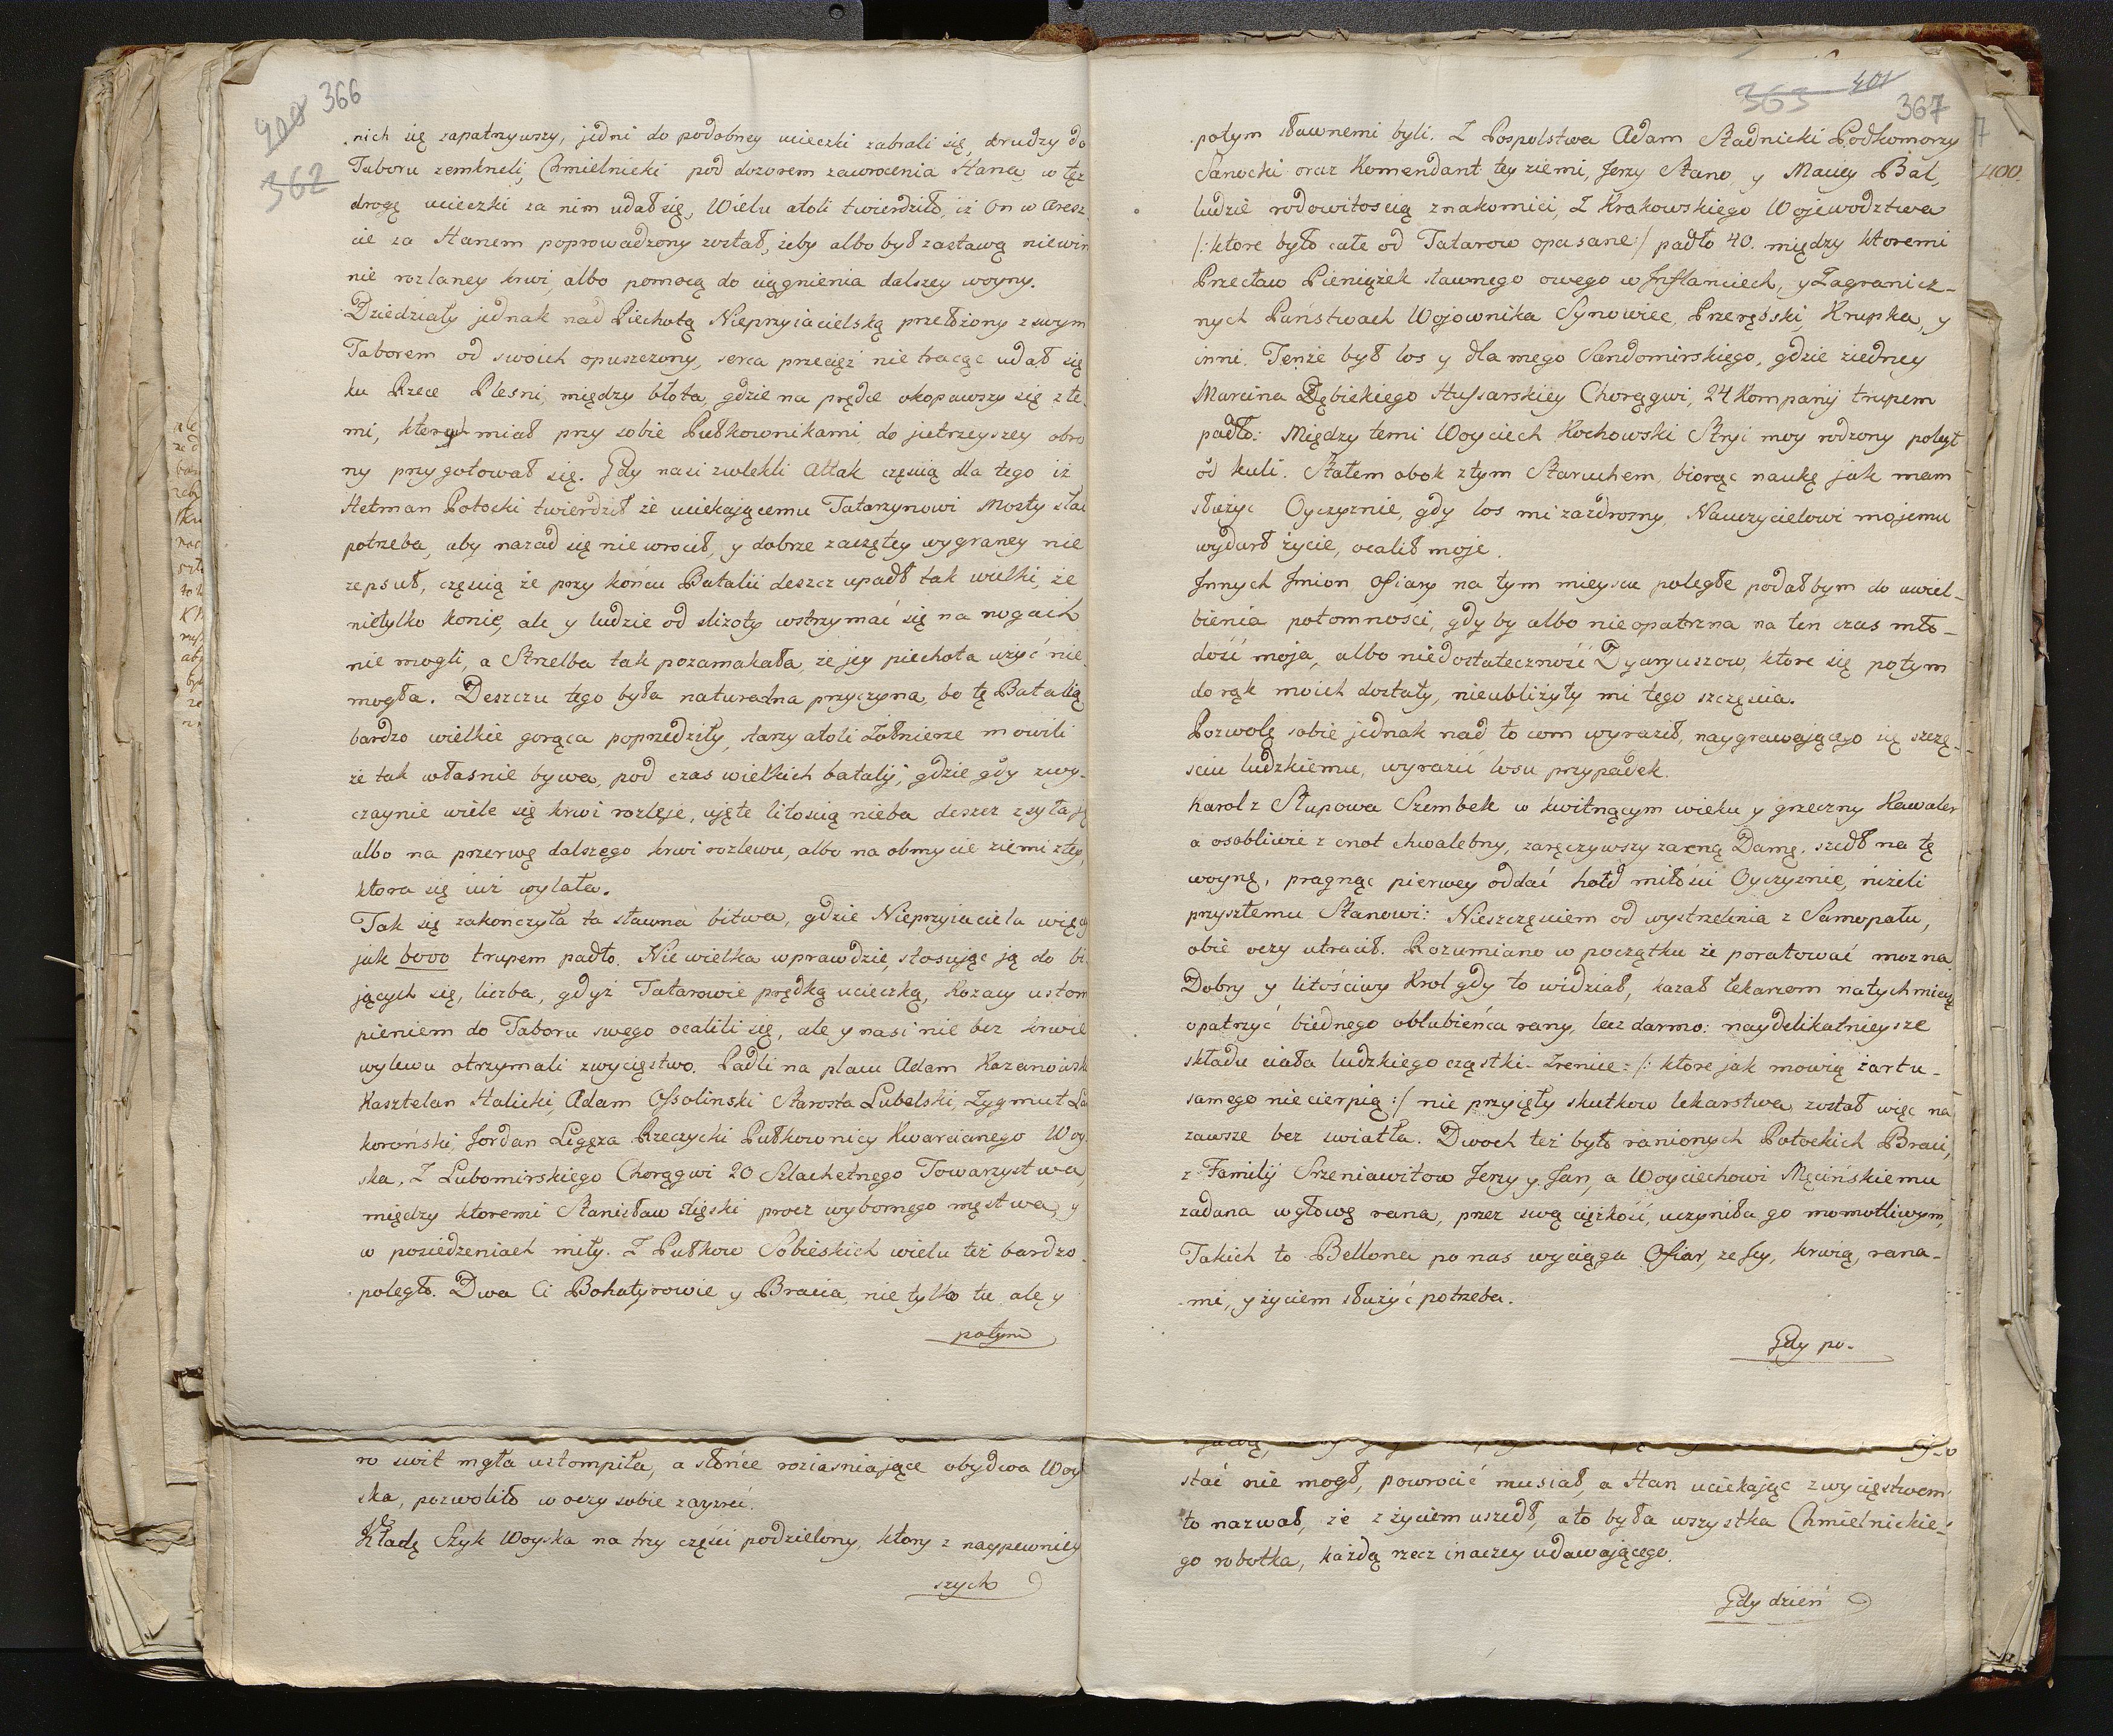 400 366
362
nich się zapatrzywszy, jedni do podobney ucieczki zabrali się, drudzy do
Taboru zemkneli, Chmielnicki pod dozorem zawrocenia Hana, w tęż
drogę ucieczki za nim udał się, Wielu atoli twierdziło, iż On w Aresz
cie za Hanem poprowadzony został, żeby albo był zastawą niewin
nie rozlaney krwi, albo pomocą do ciągnienia dalszey woyny.
Dziedziały jednak nad Piechotą Nieprzyiacielską przełożony z swym
Taborem od swoich opuszczony, serca przecięż nie tracąc udał się
ku Rzece Plesni, między błota, gdzie na prędce okopawszy się z te-
mi, których miał przy sobie Pułkownikami, do jutrzeyszey obro
ny przygotował się. Gdy nasi zwlekli Attak częscią dla tego iż
Hetman Potocki twierdził że uciekającemu Tatarzynowi Mosty słać
potrzeba, aby nazad się nie wrocił, y dobrze zaczętey wygraney nie
zepsuł, częscią że przy końcu Batalii deszcz upadł tak wielki, że
nietylko konie, ale y ludzie od slizoty wstrzymać się na nogach
nie mogli, a Strzelba tak pozamakała, że jey piechota użyć nie
mogła. Deszczu tego była naturalna przyczyna, bo tę Batalią
bardzo wielkie gorąca poprzedziły, starzy atoli Żołnierze mowili
że tak własnie bywa, pod czas wielkich batalij, gdzie gdy zwy-
czaynie wiele się krwi rozleje, ujęte litoscią nieba deszcz zsyłają
albo na przerwę dalszego krwi rozlewu, albo na obmycie ziemi z tey,
ktora się już wylała.
Tak się zakonczyła ta sławna bitwa, gdzie Nieprzyiaciela więcey
jak 6000 trupem padło. Nie wielka wprawdzie, stosując ją do bi
jących się, liczba, gdyż Tatarowie prędką ucieczką, Kozacy ustom
pieniem do Taboru swego ocalili się, ale y nasi nie bez krwie
wylewu otrzymali zwycięstwo. Padli na placu Adam Kazanowski
Kasztelan Halicki, Adam Ossolinski Starosta Lubelski, Zygmut La
koroński, Jordan Ligęza Rzeczycki Pułkownicy Kwarcianego Woy
ska, Z Lubomirskiego Chorągwi 20 Szlachetnego Towarzystwa,
między ktoremi Stanisław Slęski procz wybornego męstwa, y
w posiedzeniach miły. Z Pułkow Sobieskich wielu też bardzo
poległo. Dwa Ci Bohatyrowie y Bracia, nie tylko tu, ale y
potym
ro swit mgła ustompiła, a słońce roziasniające obydwa Woy
ska, pozwoliło w oczy sobie zayzreć.
Kładę Szyk Woyska na trzy części podzielony, ktory z naypewniey
szych
363 401
367
potym sławnemi byli. Z Pospolstwa Adam Stadnicki Podkomorzy
Sanocki oraz Komendant tey ziemi, Jerzy Stano, y Maciey Bal,
ludzie rodowitoscią znakomici, Z Krakowskiego Wojewodztwa
/: ktore było całe od Tatarow opasane :/ padło 40. między ktoremi
Przecław Pieniążek sławnego owego w Jnflanciech, y Zagranicz-
nych Państwach Wojownika Synowiec, Przerębski, Krupka, y
inni. Tenże był los y dla mego Sandomirskiego, gdzie ziedney
Marcina Dębickiego Hussarskiey Chorągwi, 24 Kompanij trupem
padło: Między temi Woyciech Kochowski Stryi moy rodzony poległ
od kuli. Stałem obok ztym Staruchem, biorąc naukę jak mam
służyc Oyczyznie, gdy los mi zazdrosny, Nauczycielowi mojemu
wydarł życie, ocalił moje.
Jnnych Jmion Ofiary na tym mieyscu poległe podałbym do uwiel-
bienia potomności, gdy by albo nieopatrzna na ten czas mło-
dość moja, albo niedostateczność Dyaryuszow, ktore się potym
do rąk moich dostały, nieubliżyły mi tego szczęscia.
Pozwolę sobie jednak nad to com wyraził, naygrawającego się szczę-
sciu ludzkiemu, wyrazić losu przypadek.
Karol z Słupowa Szembek w kwitnącym wieku y grzeczny Kawaler
a osobliwie z cnot chwalebny, zaręczywszy zacną Damę, szedł na tę
woynę, pragnąc pierwey oddać hołd miłości Oyczyznie, niżeli
przyszłemu Stanowi: Nieszczęsciem od wystrzelenia z Samopału,
obie oczy utracił. Rozumiano w początku że poratować mozna
Dobry y litościwy Krol gdy to widział, kazał lekarzom natychmiast
opatrzyć biednego oblubieńca rany, lecz darmo: naydelikatnieysze
składu ciała ludzkiego cząstki - Zrenice - /: ktore jak mowią żartu -
samego nie cierpią :/ nie przyięły skutkow lekarstwa, został więc na
zawsze bez swiatła. Dwoch też było ranionych Potockich Braci,
z Familij Srzeniawitow Jerzy y Jan, a Woyciechowi Męcińskiemu
zadana w głowę rana, przez swą ciężkość, uczyniła go momotliwym,
Takich to Bellona po nas wyciąga Ofiar, ze Jey, krwią, rana-
mi, y życiem służyć potrzeba.
Gdy po-
stać nie mogł, powrocić musiał, a Han uciekając zwycięstwem
to nazwał, że z życiem uszedł, a to była wszystka Chmielnickie-
go robotka, każdą rzecz inaczey udawającego.
Gdy dzień
400.